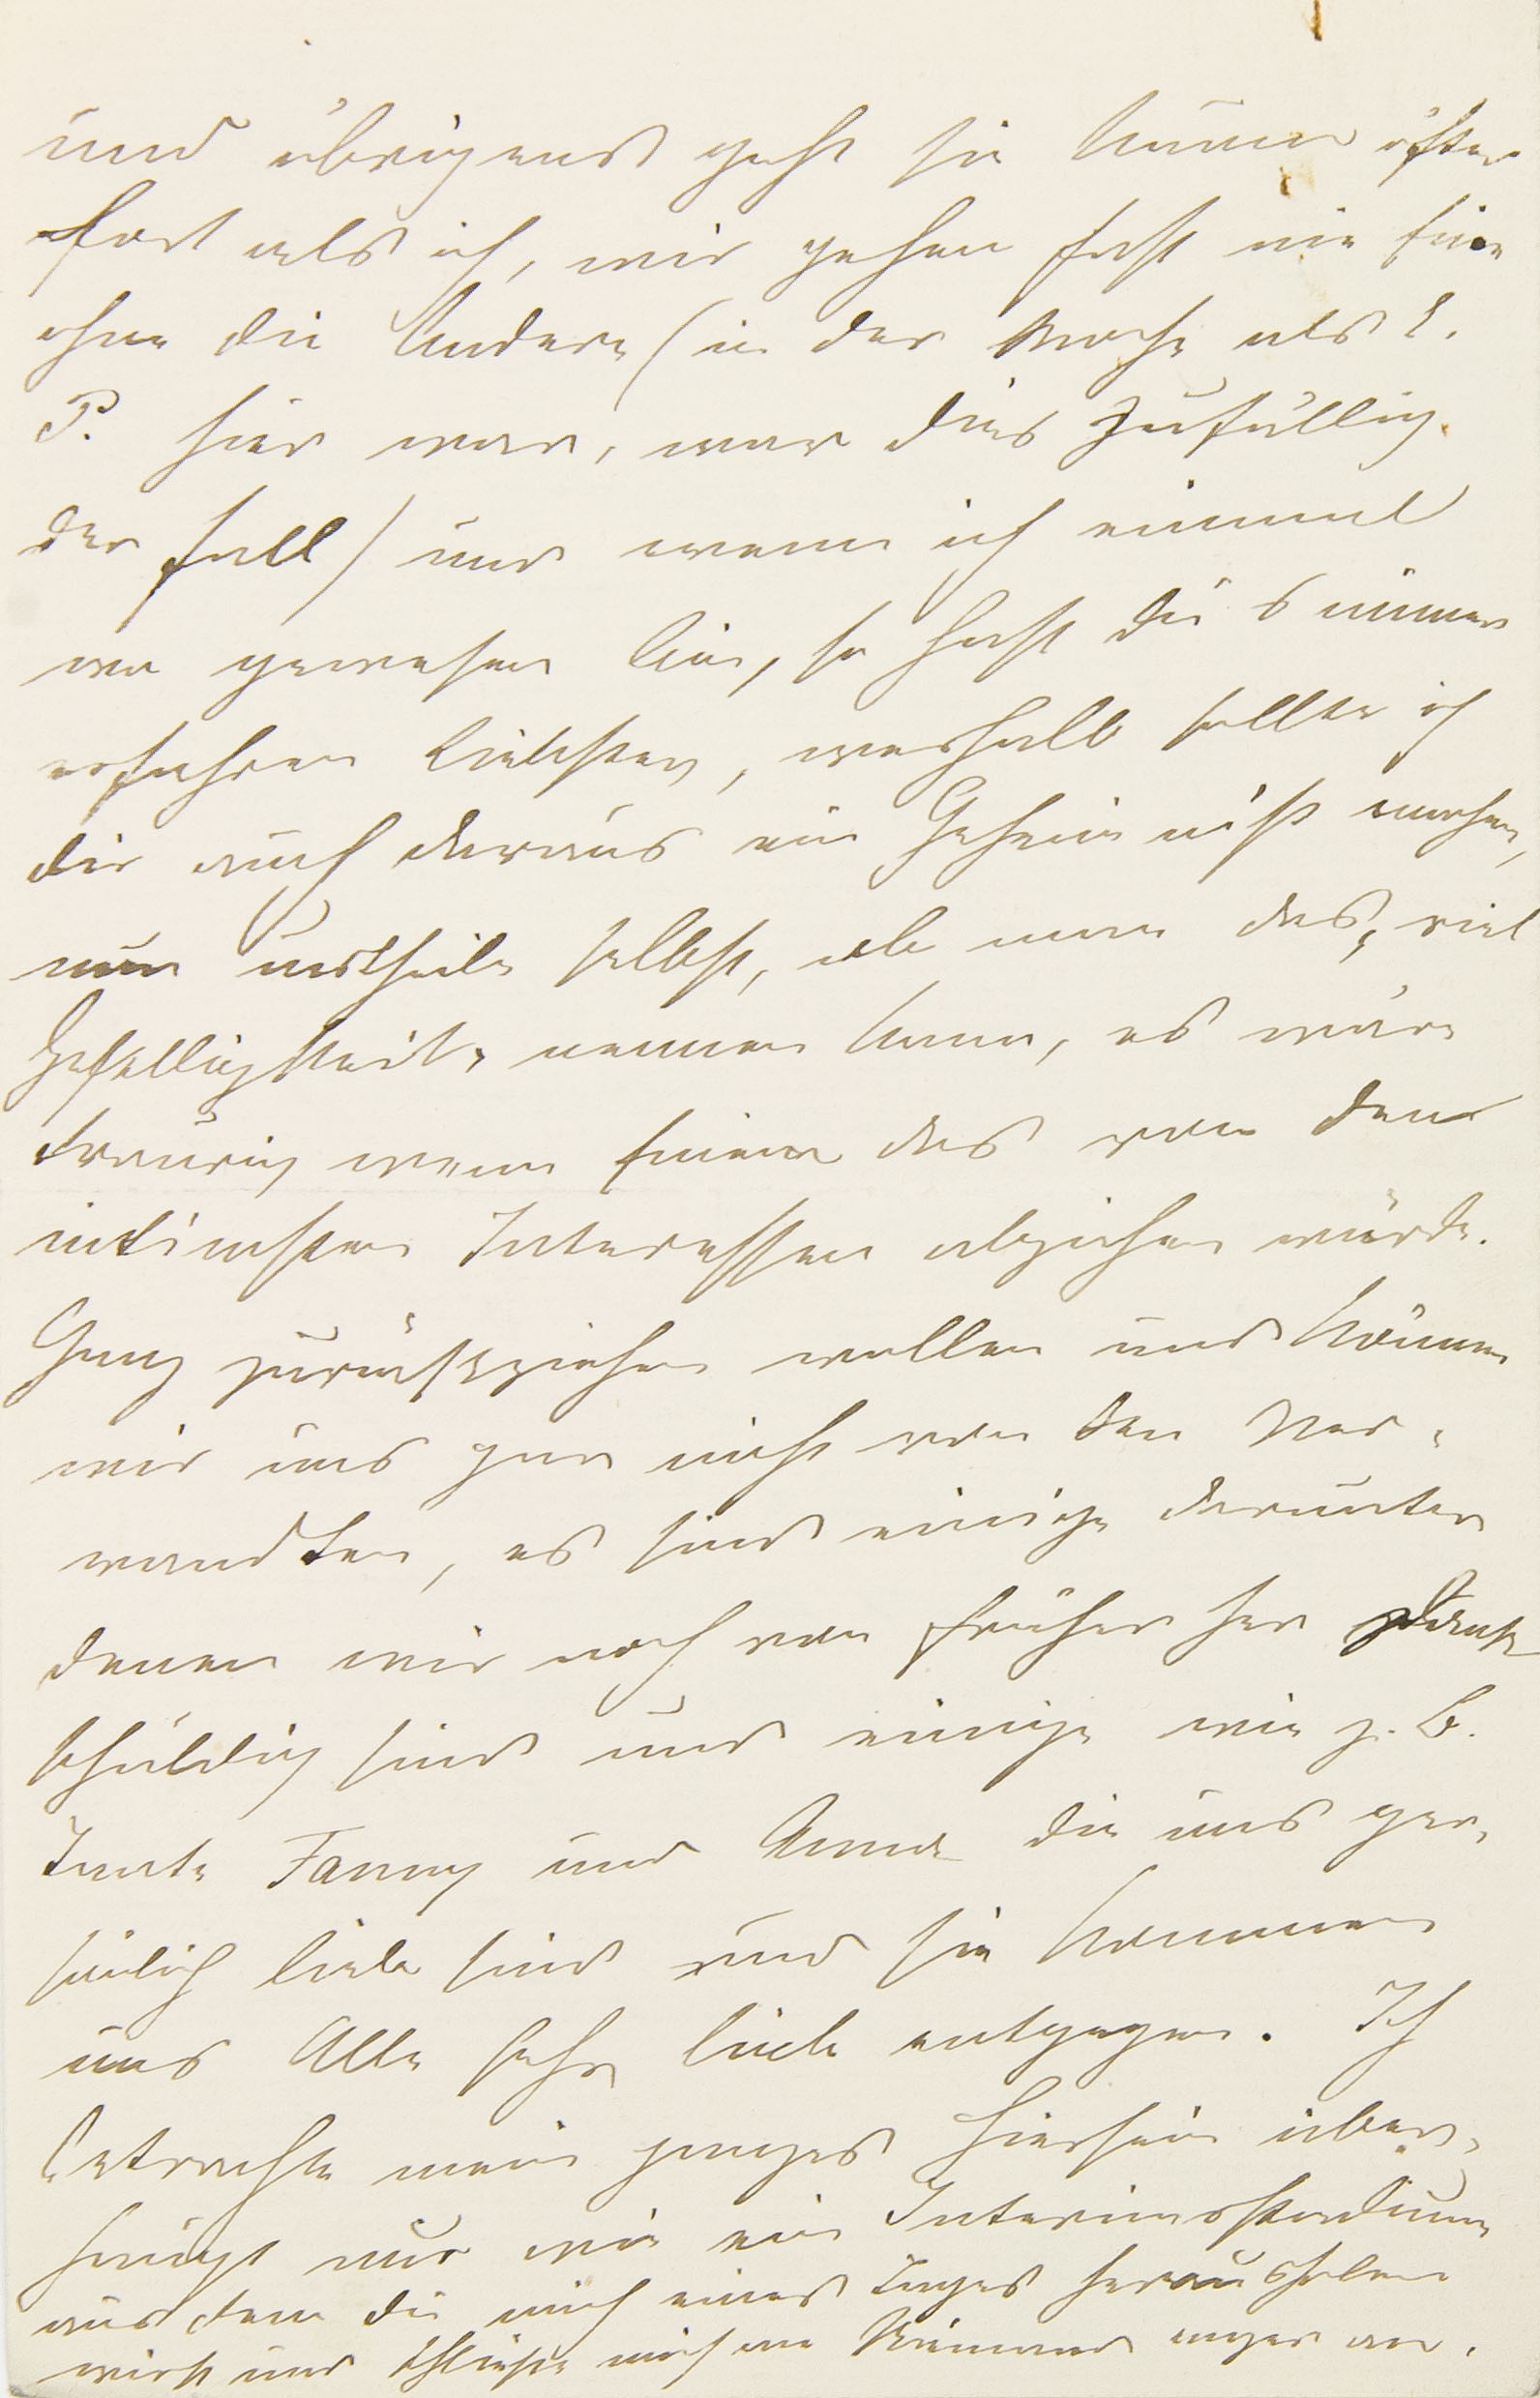 und übrigens geht sie kaum öfter
fort als ich, wir gehen fast nie Eine
ohne die Andere (in der Woche als E.
P. hier war, war dies zufällig
der Fall) und wenn ich einmal
wo gewesen bin, so hast Du's immer
erfahren Liebster, weshalb sollte ich
dir auch daraus ein Geheimniß machen,
nun urtheile selbst, ob man das „viel
Geselligkeit“ nennen kann, es wäre
traurig wenn Einen das von den
intimsten Interessen abziehen würde.
Ganz zurückziehen wollen und können
wir uns gar nicht von den Ver-
wandten, es sind einige darunter
denen wir noch von früher her Dank
schuldig sind und einige wie z. B.
Tante Fanny und Anna die uns per-
sönlich lieb sind und sie kommen
uns Alle sehr lieb entgegen. Ich
betrachte mein ganzes Hiersein über-
haupt nur wie ein Interimsstadium
aus dem Du mich eines Tages herausholen
wirst und schließe mich an Niemand enger an.